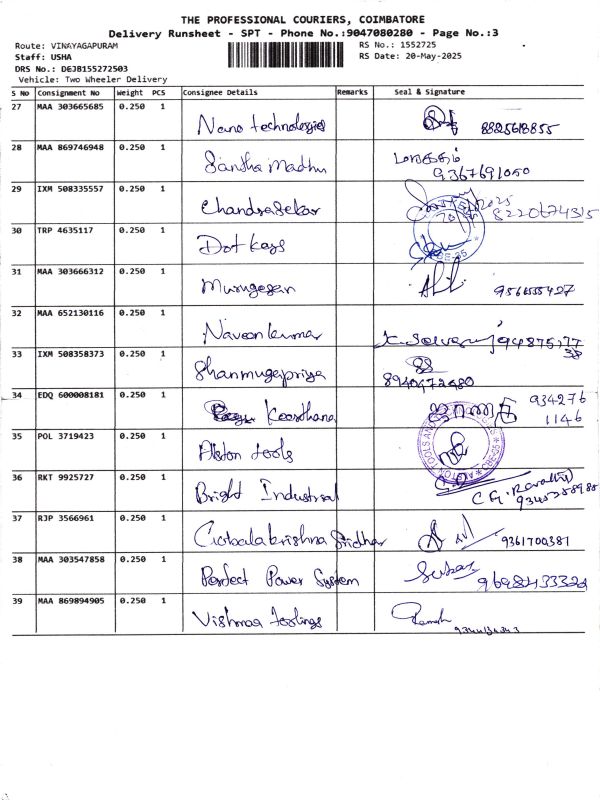 THE PROFESSIONAL COURIERS, COIMBATORE
Delivery Runsheet - SPT - Phone No.:9047080280 - Page No.:3
Route: VINAYAGAPURAM RS No.: 1552725
Staff: USHA RS Date: 20-May-2025
DRS No.: DEJB155272503
Vehicle: Two Wheeler Delivery
S No Consignment No Weight PCS Consignee Details Remarks Seal & Signature
27 MAA 303665685 0.250 1
Nano technologies 8825618855
28 MAA 869746948 0.250 1
Santha Madhu 9367691050
29 IXM 508335557 0.250 1
Chandrasekar 8220674315
30 TRP 4635117 0.250 1
Dot kays
31 MAA 303666312 0.250 1
Murugesan
32 MAA 652130116 0.250 1
Naveen kumar
33 IXM 508358373 0.250 1
Shanmugapriya
34 EDQ 600008181 0.250 1
Keerthana 934276
1146
35 POL 3719423 0.250 1
Alston tools
36 RKT 9925727 0.250 1
Bright Industrial
37 RJP 3566961 0.250 1
Gobalakrishna Sridhar 9361700381
38 MAA 303547858 0.250 1
Perfect Power System
39 MAA 869894905 0.250 1
Vishmaa toolings